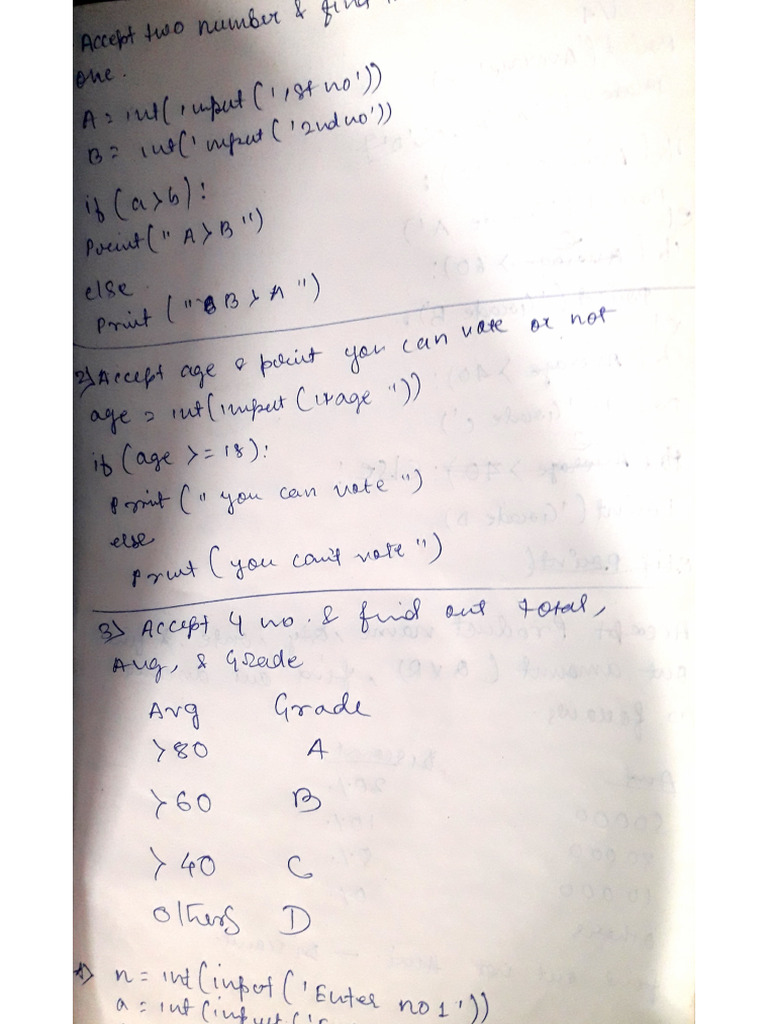 Accept two number & find
one.
A = int(input('1st no'))
B = int('input('2nd no'))
if (a>b):
Print(" A>B ")
else
Print (" B > A ")
2) Accept age & print you can vote or not
age = int(input(1+age "))
if (age >= 18):
Print (" you can vote ")
else
Print (you can't vote ")
3) Accept 4 no. & find out total,
Avg, & Grade
Avg Grade
>80 A
>60 B
>40 C
others D
n = int(input('Enter no 1'))
a = int(input(